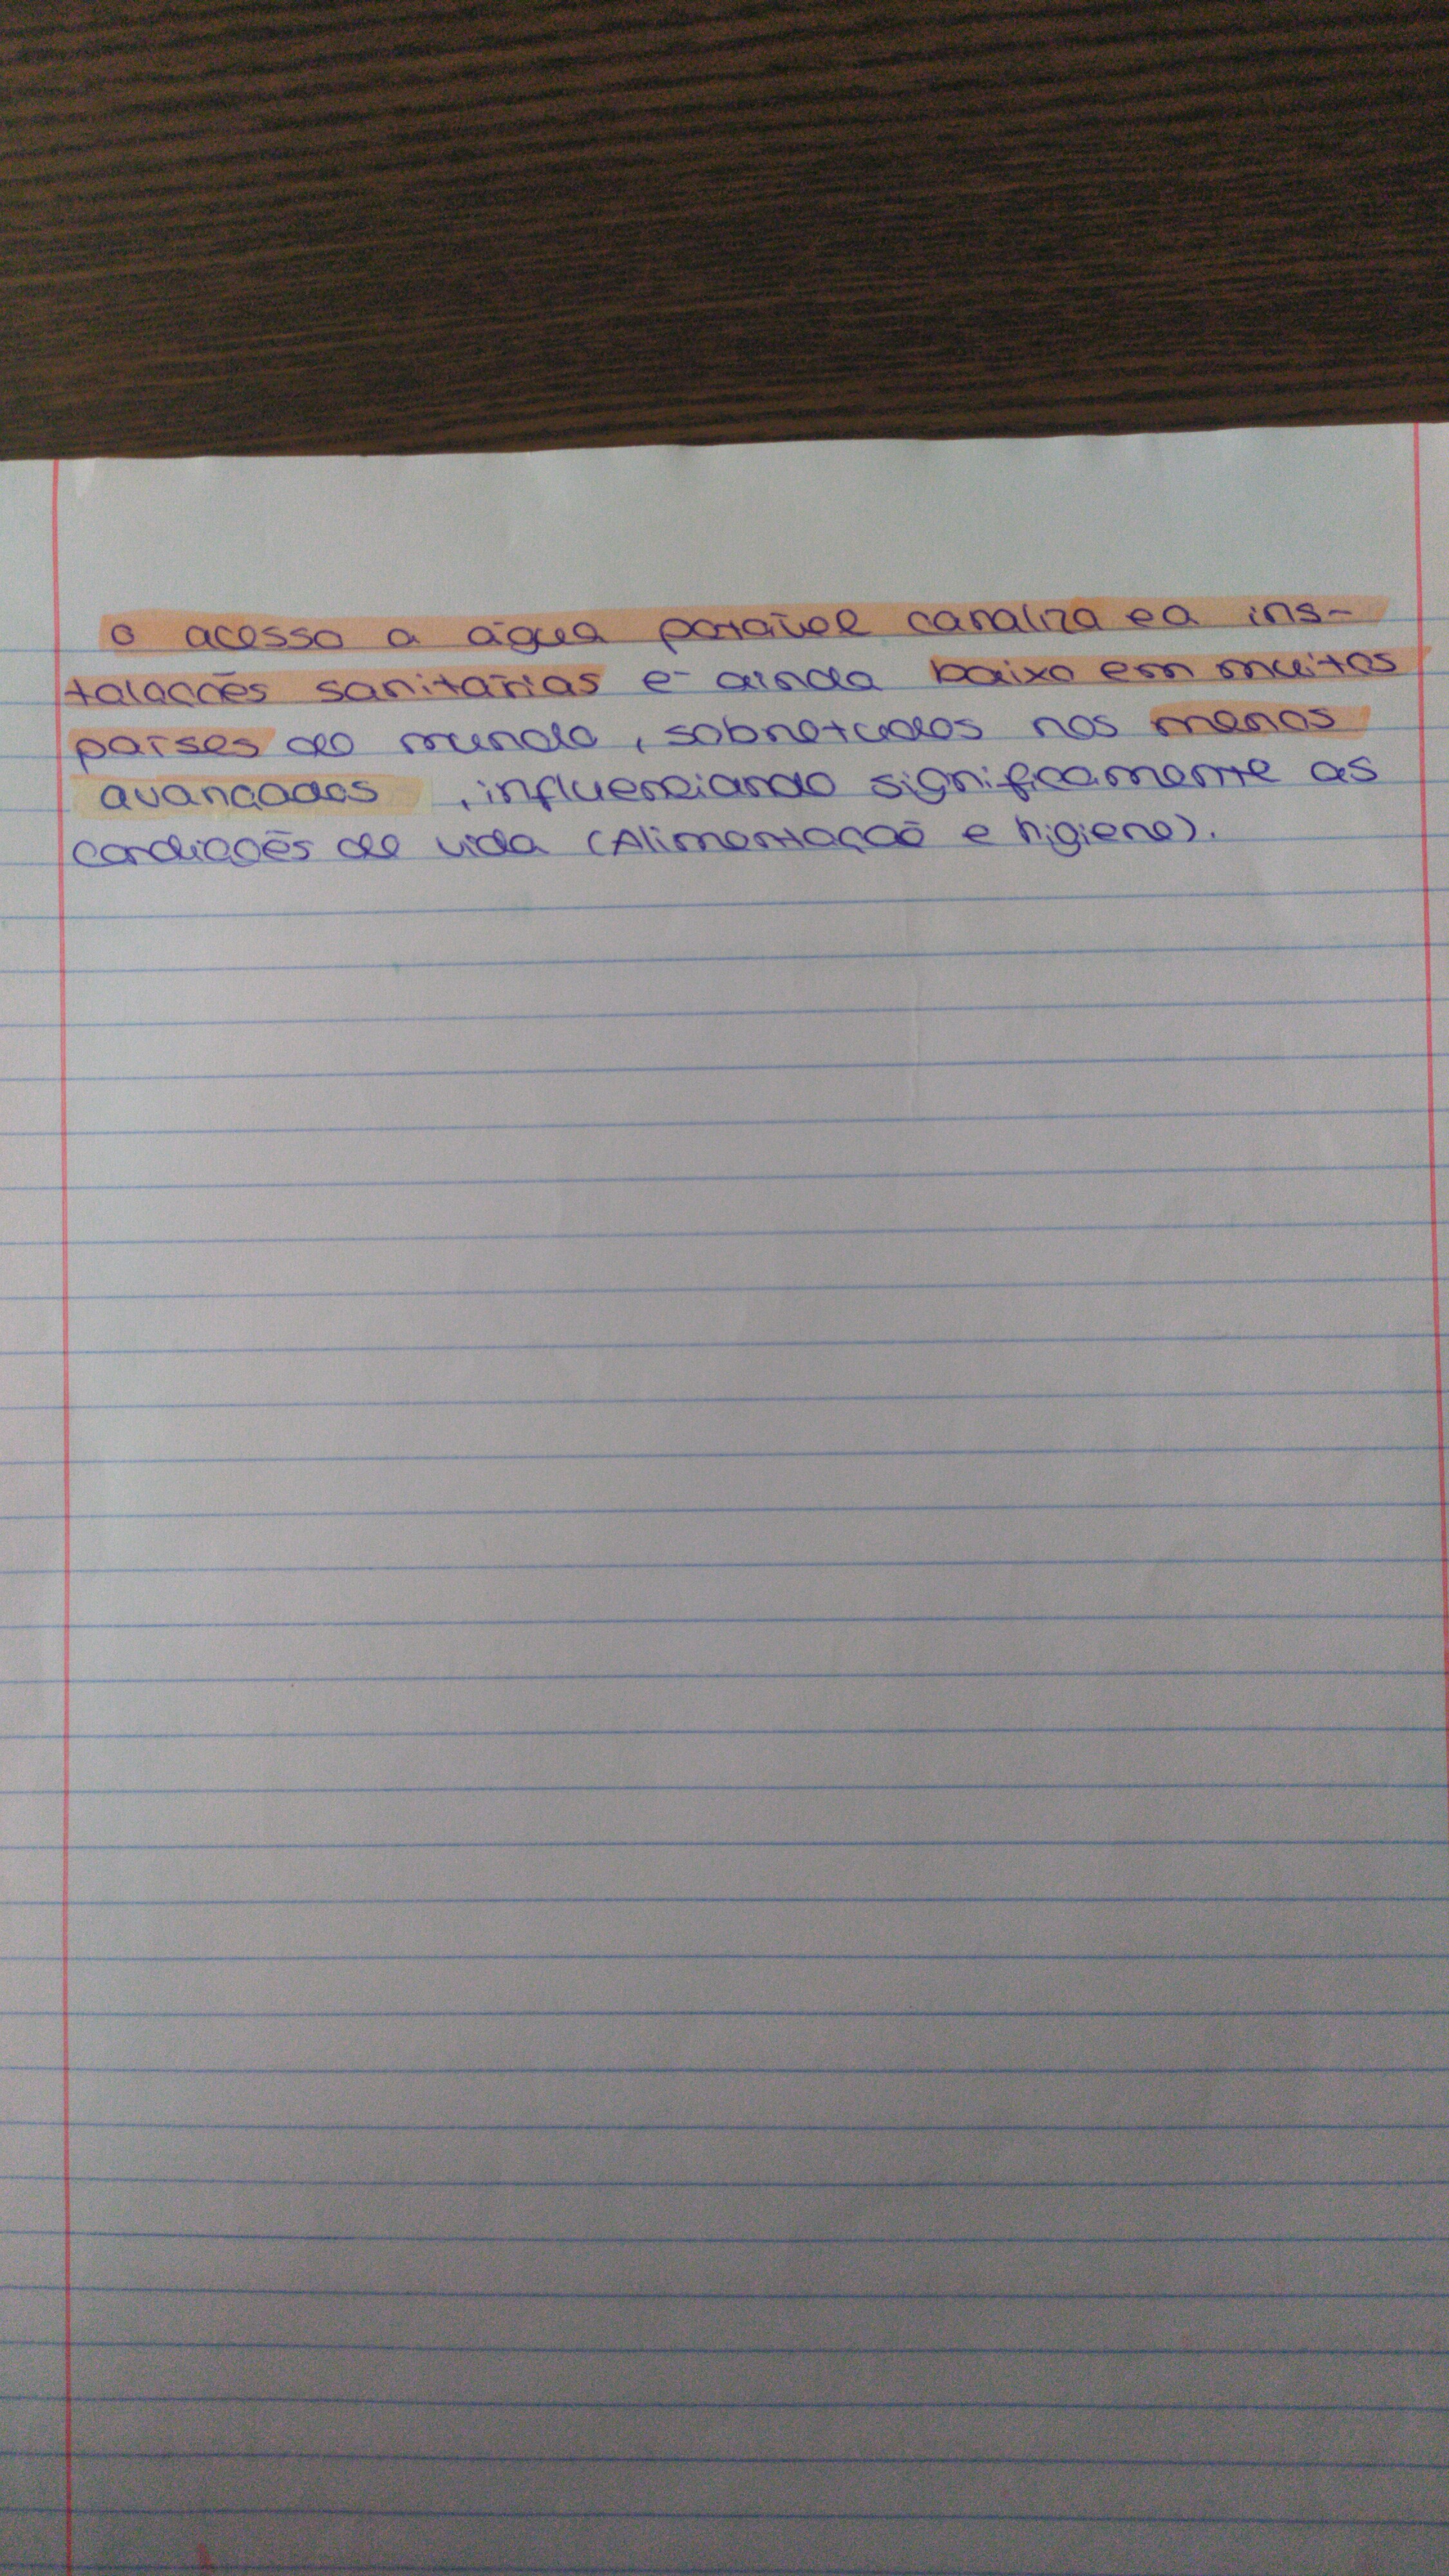 o acesso a água potável canaliza e a ins-
talações sanitárias é ainda baixo em muitos
países do mundo, sobretudos nos menos
avançados, influenciando significamente as
condições de vida (Alimentação e higiene).